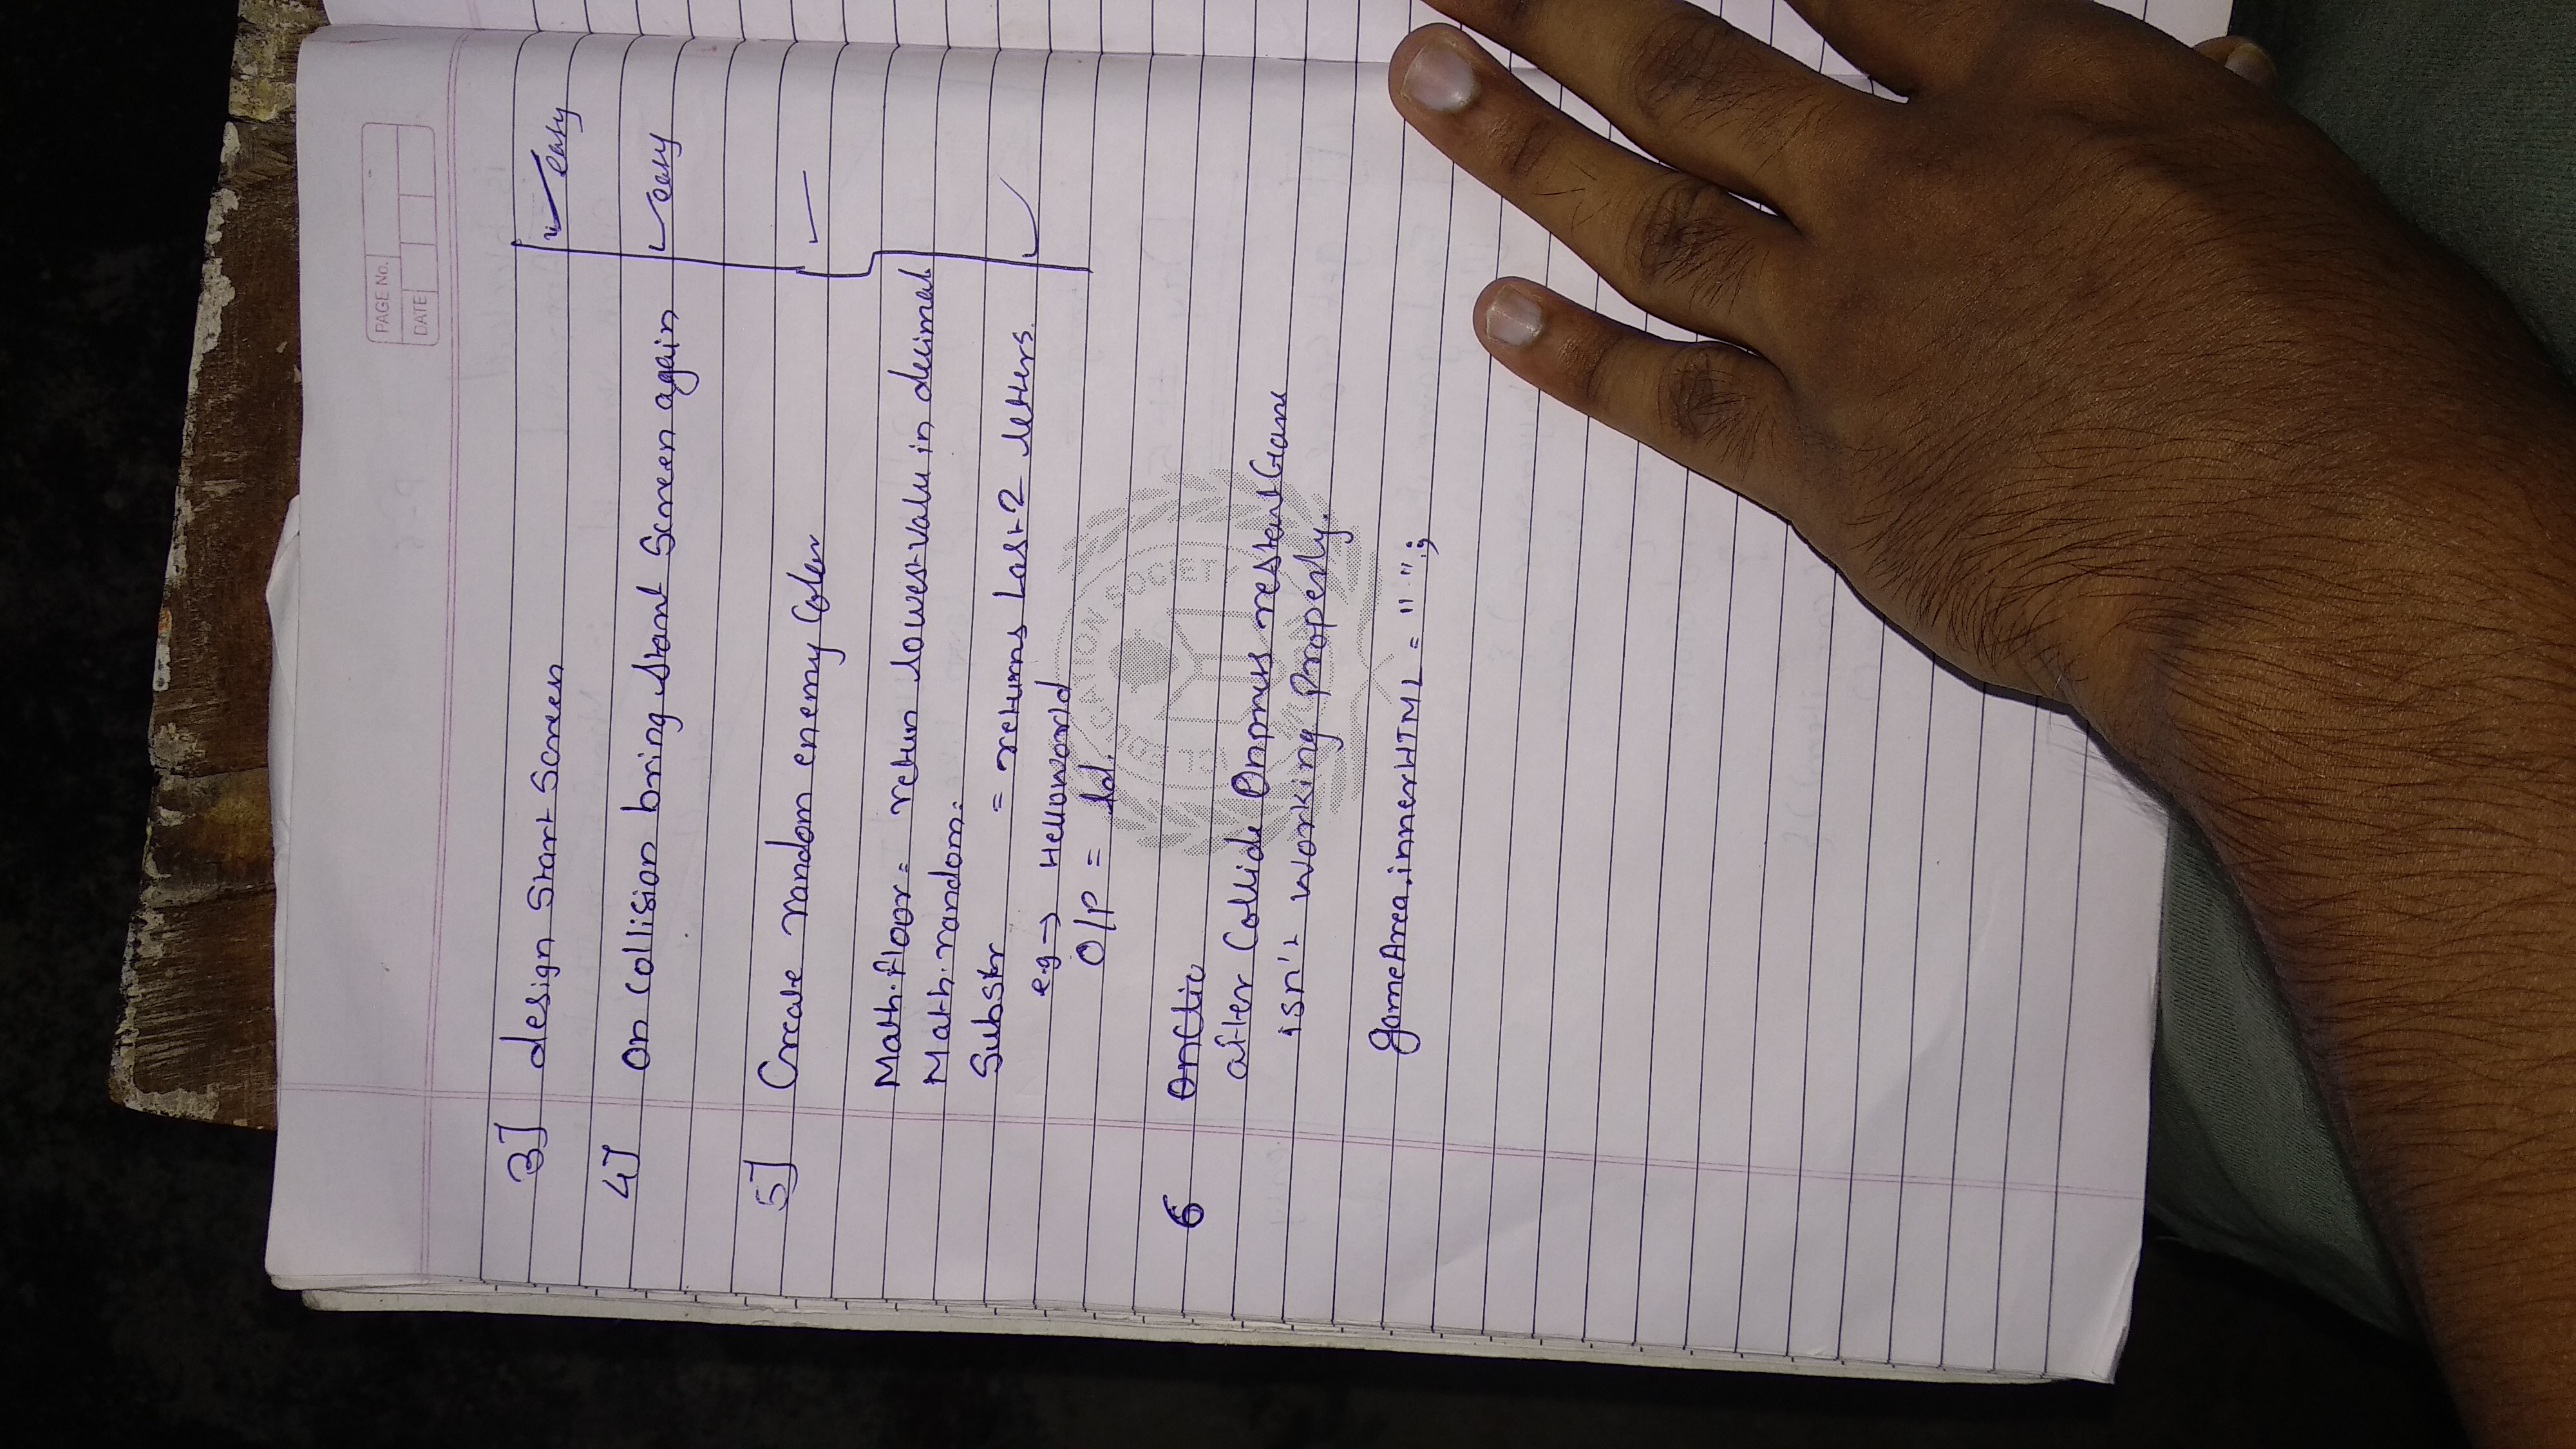 PAGE No.
DATE
3] design Start Screen ✓ easy
4] on collision bring start Screen again ✓ easy
5] Create random enemy Color ✓
Math.floor = retun lowest valu in decimal
Math.random =
Substr = returns Last 2 letters. ✓
e.g → Helloworld
O/P = ld.
EDUCATION SOCIETY
6 OnClic
after Collide Onpress restart Game
isn't working Properly.
gameArea.innerHTML = " ";